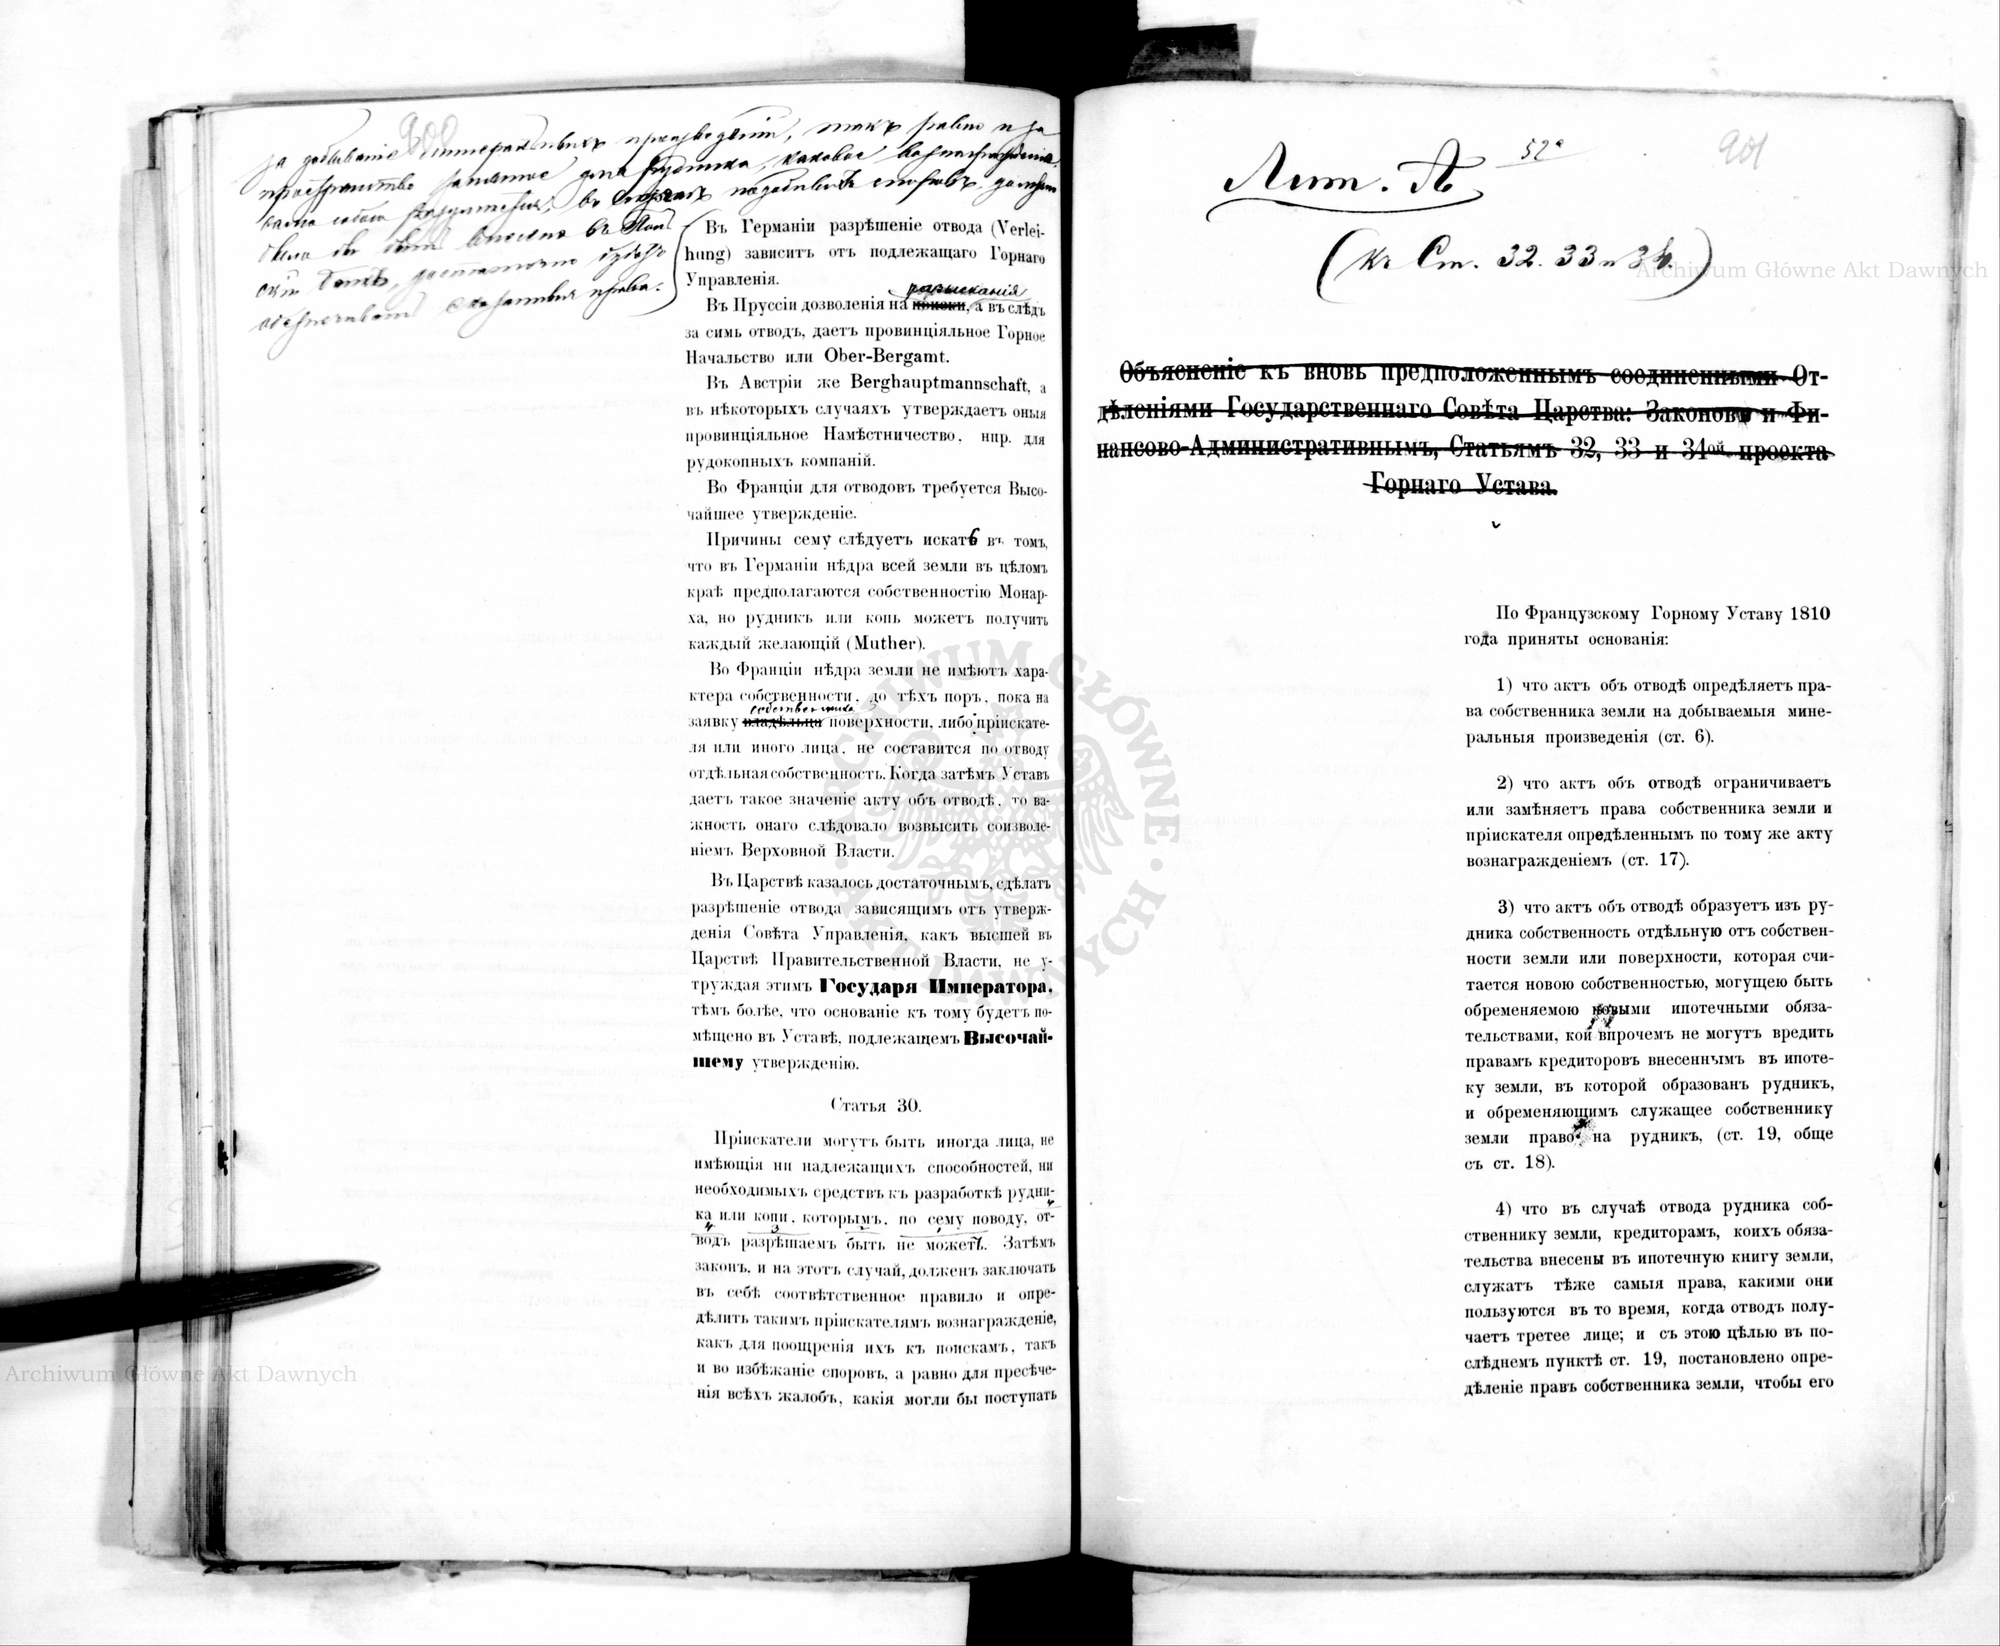 900
за добываніе минеральныхъ произведеній, такъ равно и за
пространство занятое для рудника, каковое вознагражденіе,
само собою разумѣется, въ случаѣ подобныхъ споровъ, должно
было бы быть внесено въ Поль
скій Банкъ, достаточно будетъ
обезпечивать сказанныя права.
Въ Германіи разрѣшеніе отвода (Verlei-
hung) зависитъ отъ подлежащаго Горнаго
Управленія.
разысканія
Въ Пруссіи дозволенія на поиски, а въ слѣдъ
за симь отводъ, даетъ провинціяльное Горное
Начальство или Ober-Bergamt.
Въ Австріи же Berghauptmannschaft, а
въ нѣкоторыхъ случаяхъ утверждаетъ оныя
провинціяльное Намѣстничество, нпр. для
рудокопныхъ компаній.
Во Франціи для отводовъ требуется Высо-
чайшее утвержденіе.
Причины сему слѣдуетъ искать въ томъ,
что въ Германіи нѣдра всей земли въ цѣломъ
краѣ предполагаются собственностію Монар-
ха, но рудникъ или копь можетъ получить
каждый желающій (Muther).
Во Франціи нѣдра земли не имѣютъ хара-
ктера собственности, до тѣхъ поръ, пока на
собственника
заявку владѣльца поверхности, либо пріискате-
ля или иного лица, не составится по отводу
отдѣльная собственность. Когда затѣмъ Уставъ
даетъ такое значеніе акту объ отводѣ, то ва-
жность онаго слѣдовало возвысить соизволе-
ніемъ Верховной Власти.
Въ Царствѣ казалось достаточнымъ, сдѣлать
разрѣшеніе отвода зависящимъ отъ утверж-
денія Совѣта Управленія, какъ высшей въ
Царствѣ Правительственной Власти, не у-
труждая этимъ Государя Императора,
тѣмъ болѣе, что основаніе къ тому будетъ по-
мѣщено въ Уставѣ, подлежащемъ Высочай-
шему утвержденію.
Статья 30.
Пріискатели могутъ быть иногда лица, не
имѣющія ни надлежащихъ способностей, ни
необходимыхъ средствъ къ разработкѣ рудни-
ка или копи, которымъ, по сему поводу, от-
4 3 2 1 4
водъ разрѣшаемъ быть не можетъ. Затѣмъ
законъ, и на этотъ случай, долженъ заключать
въ себѣ соотвѣтственное правило и опре-
дѣлить такимъ пріискателямъ вознагражденіе,
какъ для поощренія ихъ къ поискамъ, такъ
и во избѣжаніе споровъ, а равно для пресѣче-
нія всѣхъ жалобъ, какія могли бы поступать
52а
901
Лит. А
(къ Ст. 32. 33 и 34.)
Объясненіе къ вновь предположеннымъ соединенными От-
дѣленіями Государственнаго Совѣта Царства: Законовъ и Фи-
нансово-Административнымъ, Статьямъ 32, 33 и 34ой проекта
Горнаго Устава.
По Французскому Горному Уставу 1810
года приняты основанія:
1) что актъ объ отводѣ опредѣляетъ пра-
ва собственника земли на добываемыя мине-
ральныя произведенія (ст. 6).
2) что актъ объ отводѣ ограничиваетъ
или замѣняетъ права собственника земли и
пріискателя опредѣленнымъ по тому же акту
вознагражденіемъ (ст. 17).
3) что актъ объ отводѣ образуетъ изъ ру-
дника собственность отдѣльную отъ собствен-
ности земли или поверхности, которая счи-
тается новою собственностью, могущею быть
обременяемою новыми ипотечными обяза-
тельствами, кои впрочемъ не могутъ вредить
правамъ кредиторовъ внесеннымъ въ ипоте-
ку земли, въ которой образованъ рудникъ,
и обременяющимъ служащее собственнику
земли право на рудникъ, (ст. 19, обще
съ ст. 18).
4) что въ случаѣ отвода рудника соб-
ственнику земли, кредиторамъ, коихъ обяза-
тельства внесены въ ипотечную книгу земли,
служатъ тѣже самыя права, какими они
пользуются въ то время, когда отводъ полу-
чаетъ третее лице; и съ этою цѣлью въ по-
слѣднемъ пунктѣ ст. 19, постановлено опре-
дѣленіе правъ собственника земли, чтобы его
Archiwum Główne Akt Dawnych
Archiwum Główne Akt Dawnych
ARCHIWUM GŁÓWNE AKT DAWNYCH